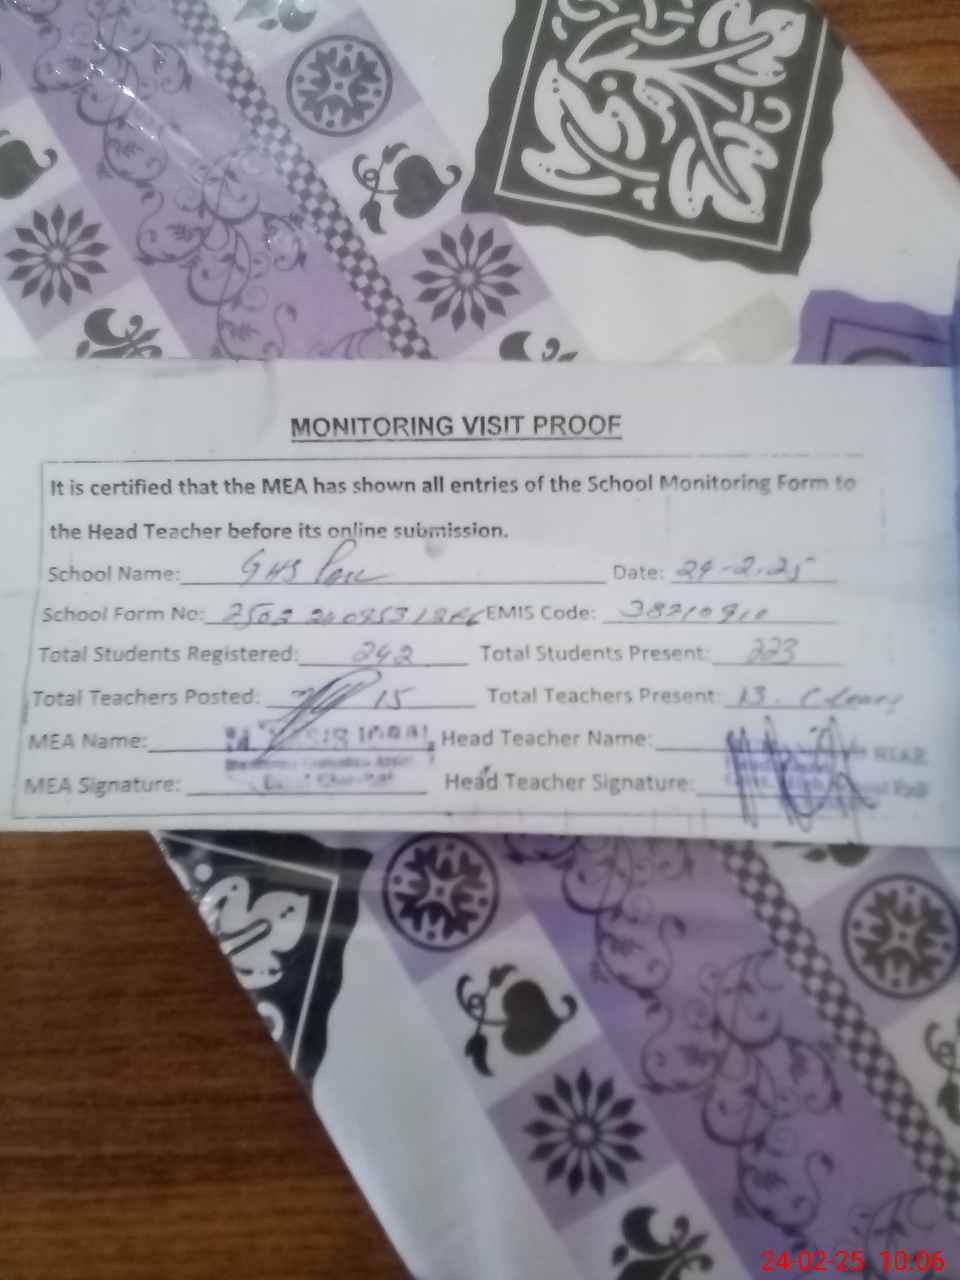 MONITORING VISIT PROOF
It is certified that the MEA has shown all entries of the School Monitoring Form to
the Head Teacher before its online submission.
School Name: GHS Date: 24-2.25
School Form No: EMIS Code: 38210910
Total Students Registered: 242 Total Students Present: 223
Total Teachers Posted: 15 Total Teachers Present: 13.
MEA Name: Head Teacher Name:
MEA Signature: Head Teacher Signature:
24-02-25 10:06